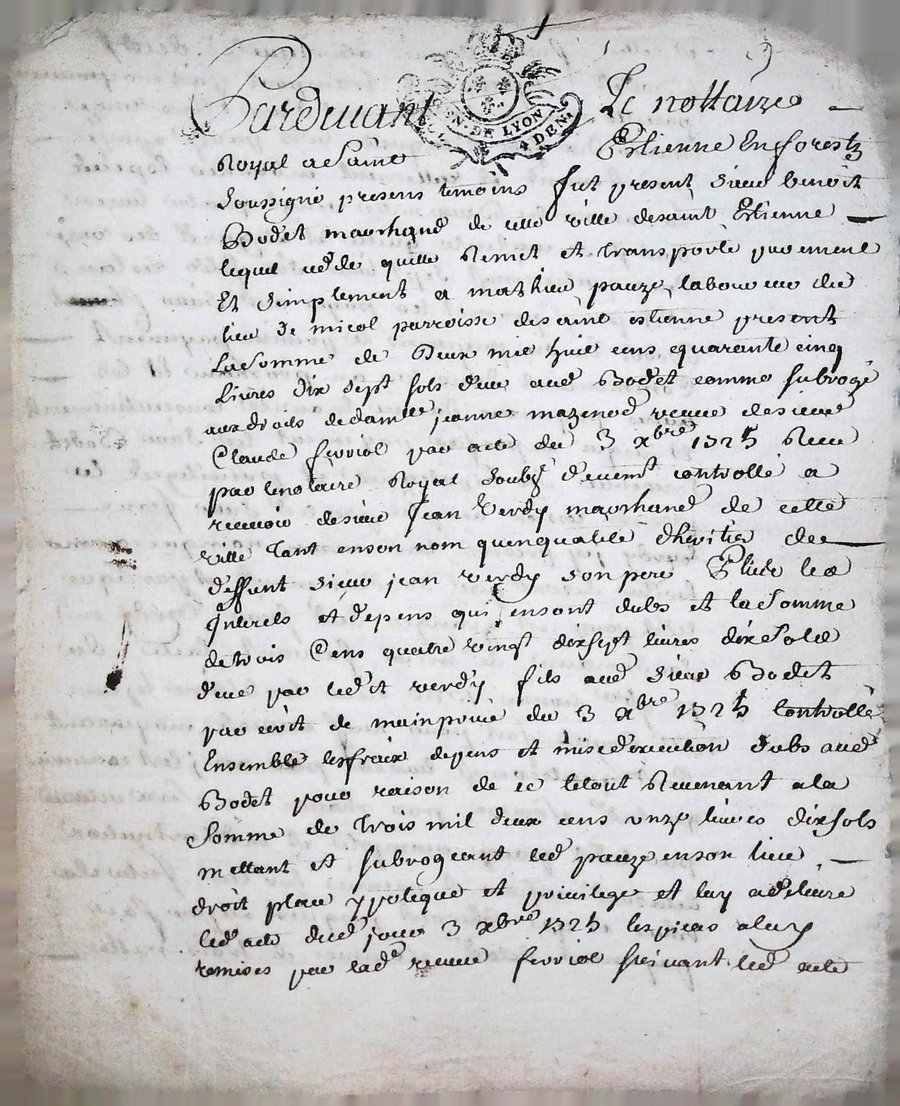 Pardevant Le nottaire
GEN. DE LYON
4 DEN.
Royal a Saint Estienne En forestz
Soussigné presens temoins fut present Sieur benoit
Bodet marchand de cette ville de saint Estienne
lequel cede quitte Remet et transporte purement
Et Simplement a mathieu pauze laboureur du
lieu de micol parroisse de saint estienne present
La Somme de Deux mil huit cens quarante cinq
Livres dix sept sols due aud Bodet comme subrogé
aux droits de dam.lle jeanne mazenod veuve de sieur
Claude ferriol par acte du 3 xbre 1725 Receu
par le notaire Royal soubz.é deument controllé a
recevoir de sieur Jean Verdy marchand de cette
ville tant en son nom qu'en qualité d'heritier de
deffunt Sieur jean verdy son pere Plus les
Interets et depens qui en sont dubs et la Somme
de trois Cens quatre vingt dix sept livres dix Sols
due par ledit verdy fils aud Sieur Bodet
par ecrit de main privée du 3 xbre 1725 Controllé
Ensemble les fraix depens et mise dexecution dubs aud
Bodet pour raison de ce le tout Revenant a la
Somme de trois mil deux cens onze livres dix sols
mettant et subrogeant led pauze en son lieu
droit place ypoteque et privilege et luy a delivré
led acte dud jour 3 xbre 1725 les pieces a luy
remises par lad veuve ferriol suivant led acte